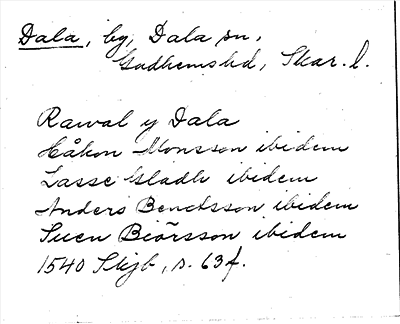 Dala, by, Dala sn,
Gudhems hd, Skar. l.
Rawal y Dala
Håkon Monsson ibidem
Lasse Gladh ibidem
Anders Benctsson ibidem
Suen Biörsson ibidem
1540 Skjb, s. 63f.